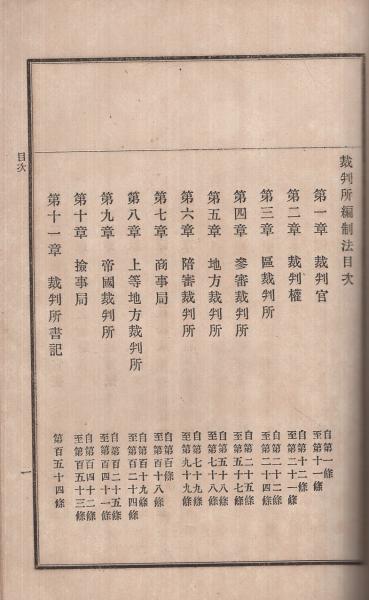 裁判所編制法目次
第一章 裁判官
自第一條
至第十一條
第二章 裁判權
自第十二條
至第二十一條
第三章 區裁判所
自第二十二條
至第二十四條
第四章 參審裁判所
自第二十五條
至第五十七條
第五章 地方裁判所
自第五十八條
至第七十八條
第六章 陪審裁判所
自第七十九條
至第九十九條
第七章 商事局
自第百條
至第百十八條
第八章 上等地方裁判所
自第百十九條
至第百二十四條
第九章 帝國裁判所
自第百二十五條
至第百四十一條
第十章 撿事局
自第百四十二條
至第百五十三條
第十一章 裁判所書記
第百五十四條
目次
一